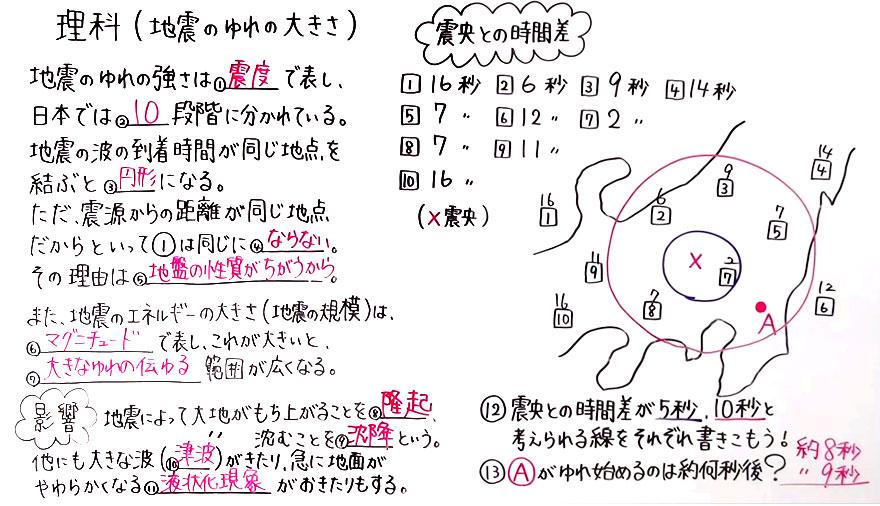 理科(地震のゆれの大きさ)
地震のゆれの強さは①震度で表し、
日本では②10段階に分かれている。
地震の波の到着時間が同じ地点を
結ぶと③円形になる。
ただ、震源からの距離が同じ地点
だからといって①は同じに④ならない。
その理由は⑤地盤の性質がちがうから。
また、地震のエネルギーの大きさ(地震の規模)は、
⑥マグニチュードで表し、これが大きいと、
⑦大きなゆれの伝わる範囲が広くなる。
影響
地震によって大地がもち上がることを⑧隆起、
〃 沈むことを⑨沈降という。
他にも大きな波(⑩津波)がきたり、急に地面が
やわらかくなる⑪液状化現象がおきたりもする。
震央との時間差
1 16秒 2 6秒 3 9秒 4 14秒
5 7 〃 6 12 〃 7 2 〃
8 7 〃 9 11 〃
10 16 〃
(×震央)
14
4
9
3
16
1
6
2
7
5
11
9
×
2
7
12
6
16
10
7
8
A
⑫震央との時間差が5秒、10秒と
考えられる線をそれぞれ書きこもう!
⑬Aがゆれ始めるのは約何秒後?
約8秒
〃 9秒